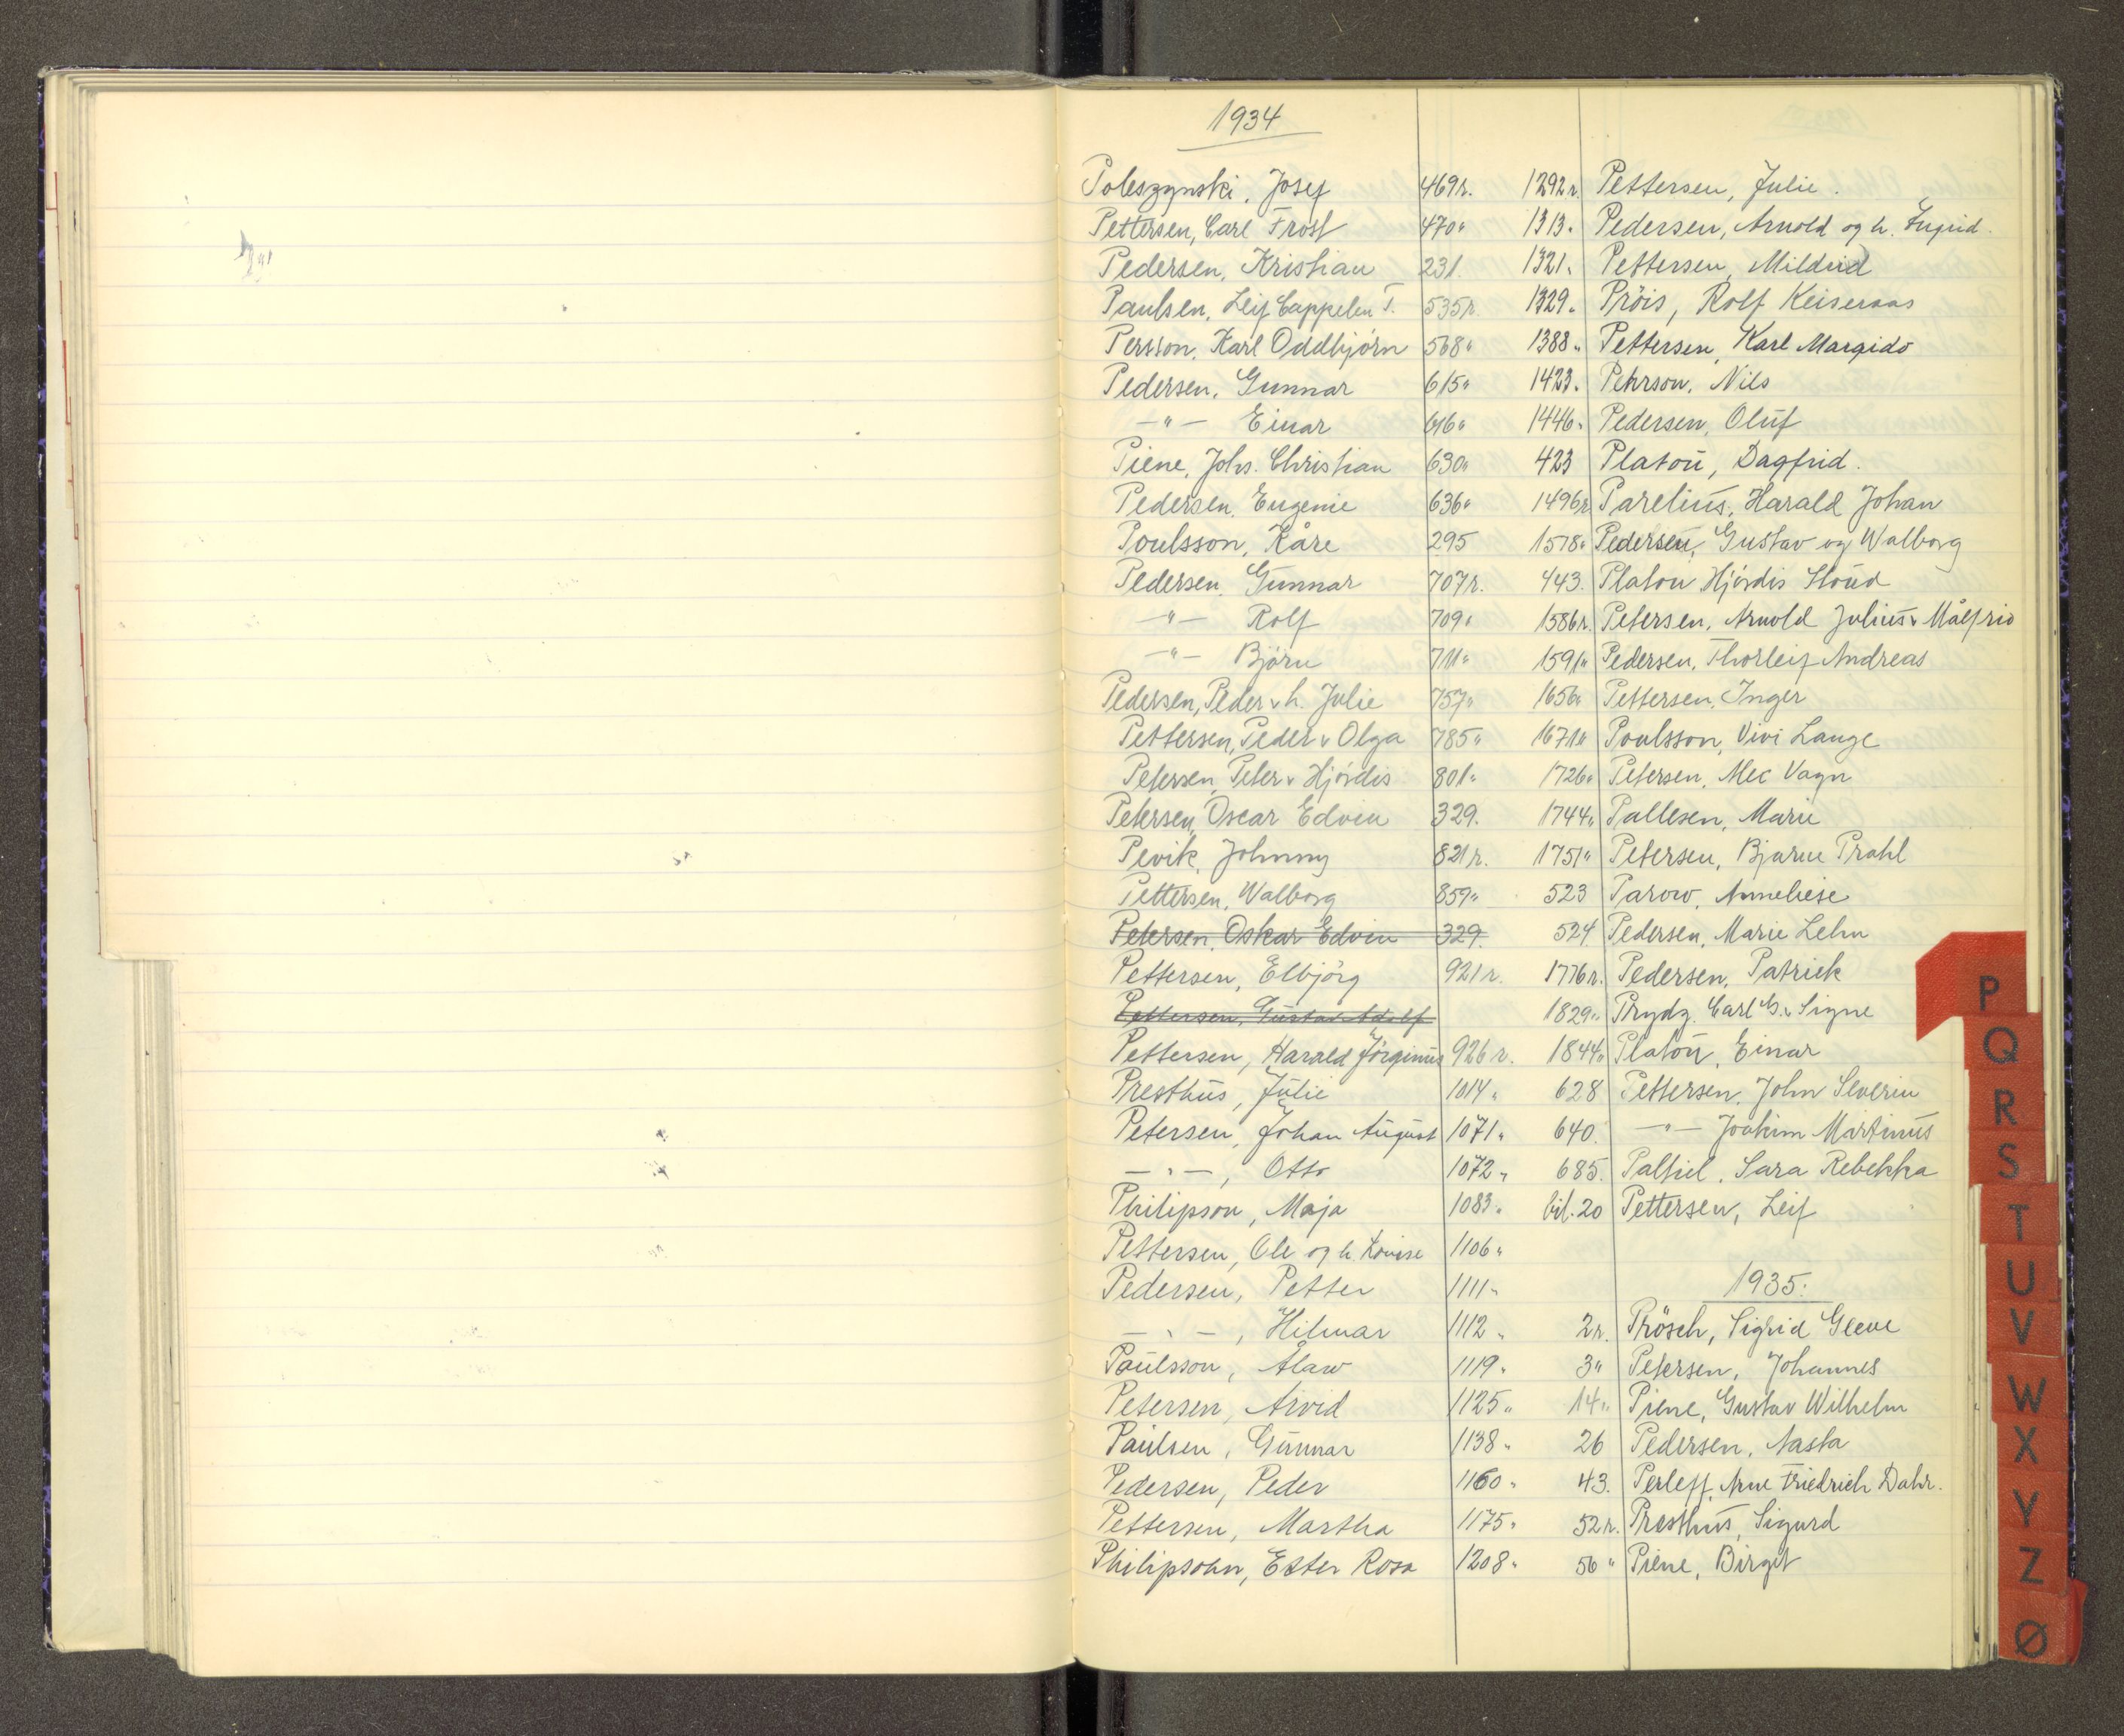 1934
Poleszynski, Josef 469r.
Pettersen, Carl Frost 470"
Pedersen, Kristian 231.
Paulsen, Leif Cappelen T. 535r.
Persson, Karl Oddbjörn 568"
Pedersen, Gunnar 615"
—"— Einar 616"
Piene, Johs. Christian 630"
Pedersen, Eugenie 636"
Poulsson, Kåre 295
Pedersen, Gunnar 707r.
—"— Rolf 709"
—"— Björn 711"
Pedersen, Peder v h. Julie 757"
Pettersen, Peder v Olga 785"
Petersen, Peter v Hjördis 801"
Petersen, Oscar Edvin 329.
Pevik, Johnny 821r.
Pettersen, Walborg 859"
Petersen, Oskar Edvin 329.
Pettersen, Elbjörg 921r.
Pettersen, Gustav Adolf
Pettersen, Harald Jörginus 926r.
Presthus, Julie 1014"
Petersen, Johan August 1071"
—"—, Otto 1072"
Philipson, Maja 1083"
Pettersen, Ole og h. Lovise 1106"
Pedersen, Petter 1111"
—"—, Hilmar 1112"
Paulsson, Alaw 1119"
Petersen, Arvid 1125"
Paulsen, Gunnar 1138"
Pedersen, Peder 1160"
Pettersen, Martha 1175"
Philipsohn, Ester Rosa 1208"
1292r. Pettersen, Julie.
1313" Pedersen, Arnold og h. Ingrid.
1321" Pettersen, Mildrid
1329" Pröis, Rolf Keiseraas
1388" Pettersen, Karl Margido
1423" Pehrson, Nils
1446" Pedersen, Oluf
423 Platou, Dagfrid.
1496r. Parelius, Harald Johan
1518" Pedersen, Gustav og Walborg
443. Platou Hjördis Stoud
1586r. Petersen, Arnold Julius v Målfrid
1591" Pedersen, Thorleif Andreas
1656" Pettersen, Inger
1671" Poulsson, Vivi Lange
1726" Petersen, Mec Vagn
1744" Pallesen, Marie
1751" Petersen, Bjarne Prahl
523 Parow, Anneliese
524 Pedersen, Marie Lehn
1776r. Pedersen, Patrick
1829" Prydz, Carl G. v Signe
1844" Platou, Einar
628 Pettersen, John Severin
640. —"— Joakim Martinus
685. Paltiel, Sara Rebekka
bil. 20 Pettersen, Leif
1935.
2r. Prösch, Sigrid Gleve
3" Petersen, Johannes
14" Piene, Gustav Wilhelm
26 Pedersen, Nasta
43. Perleff, Arne Friedrich Dahr.
52r. Presthus, Sigurd
56" Piene, Birgit
P
Q
R
S
T
U
V
W
X
Y
Z
Ø